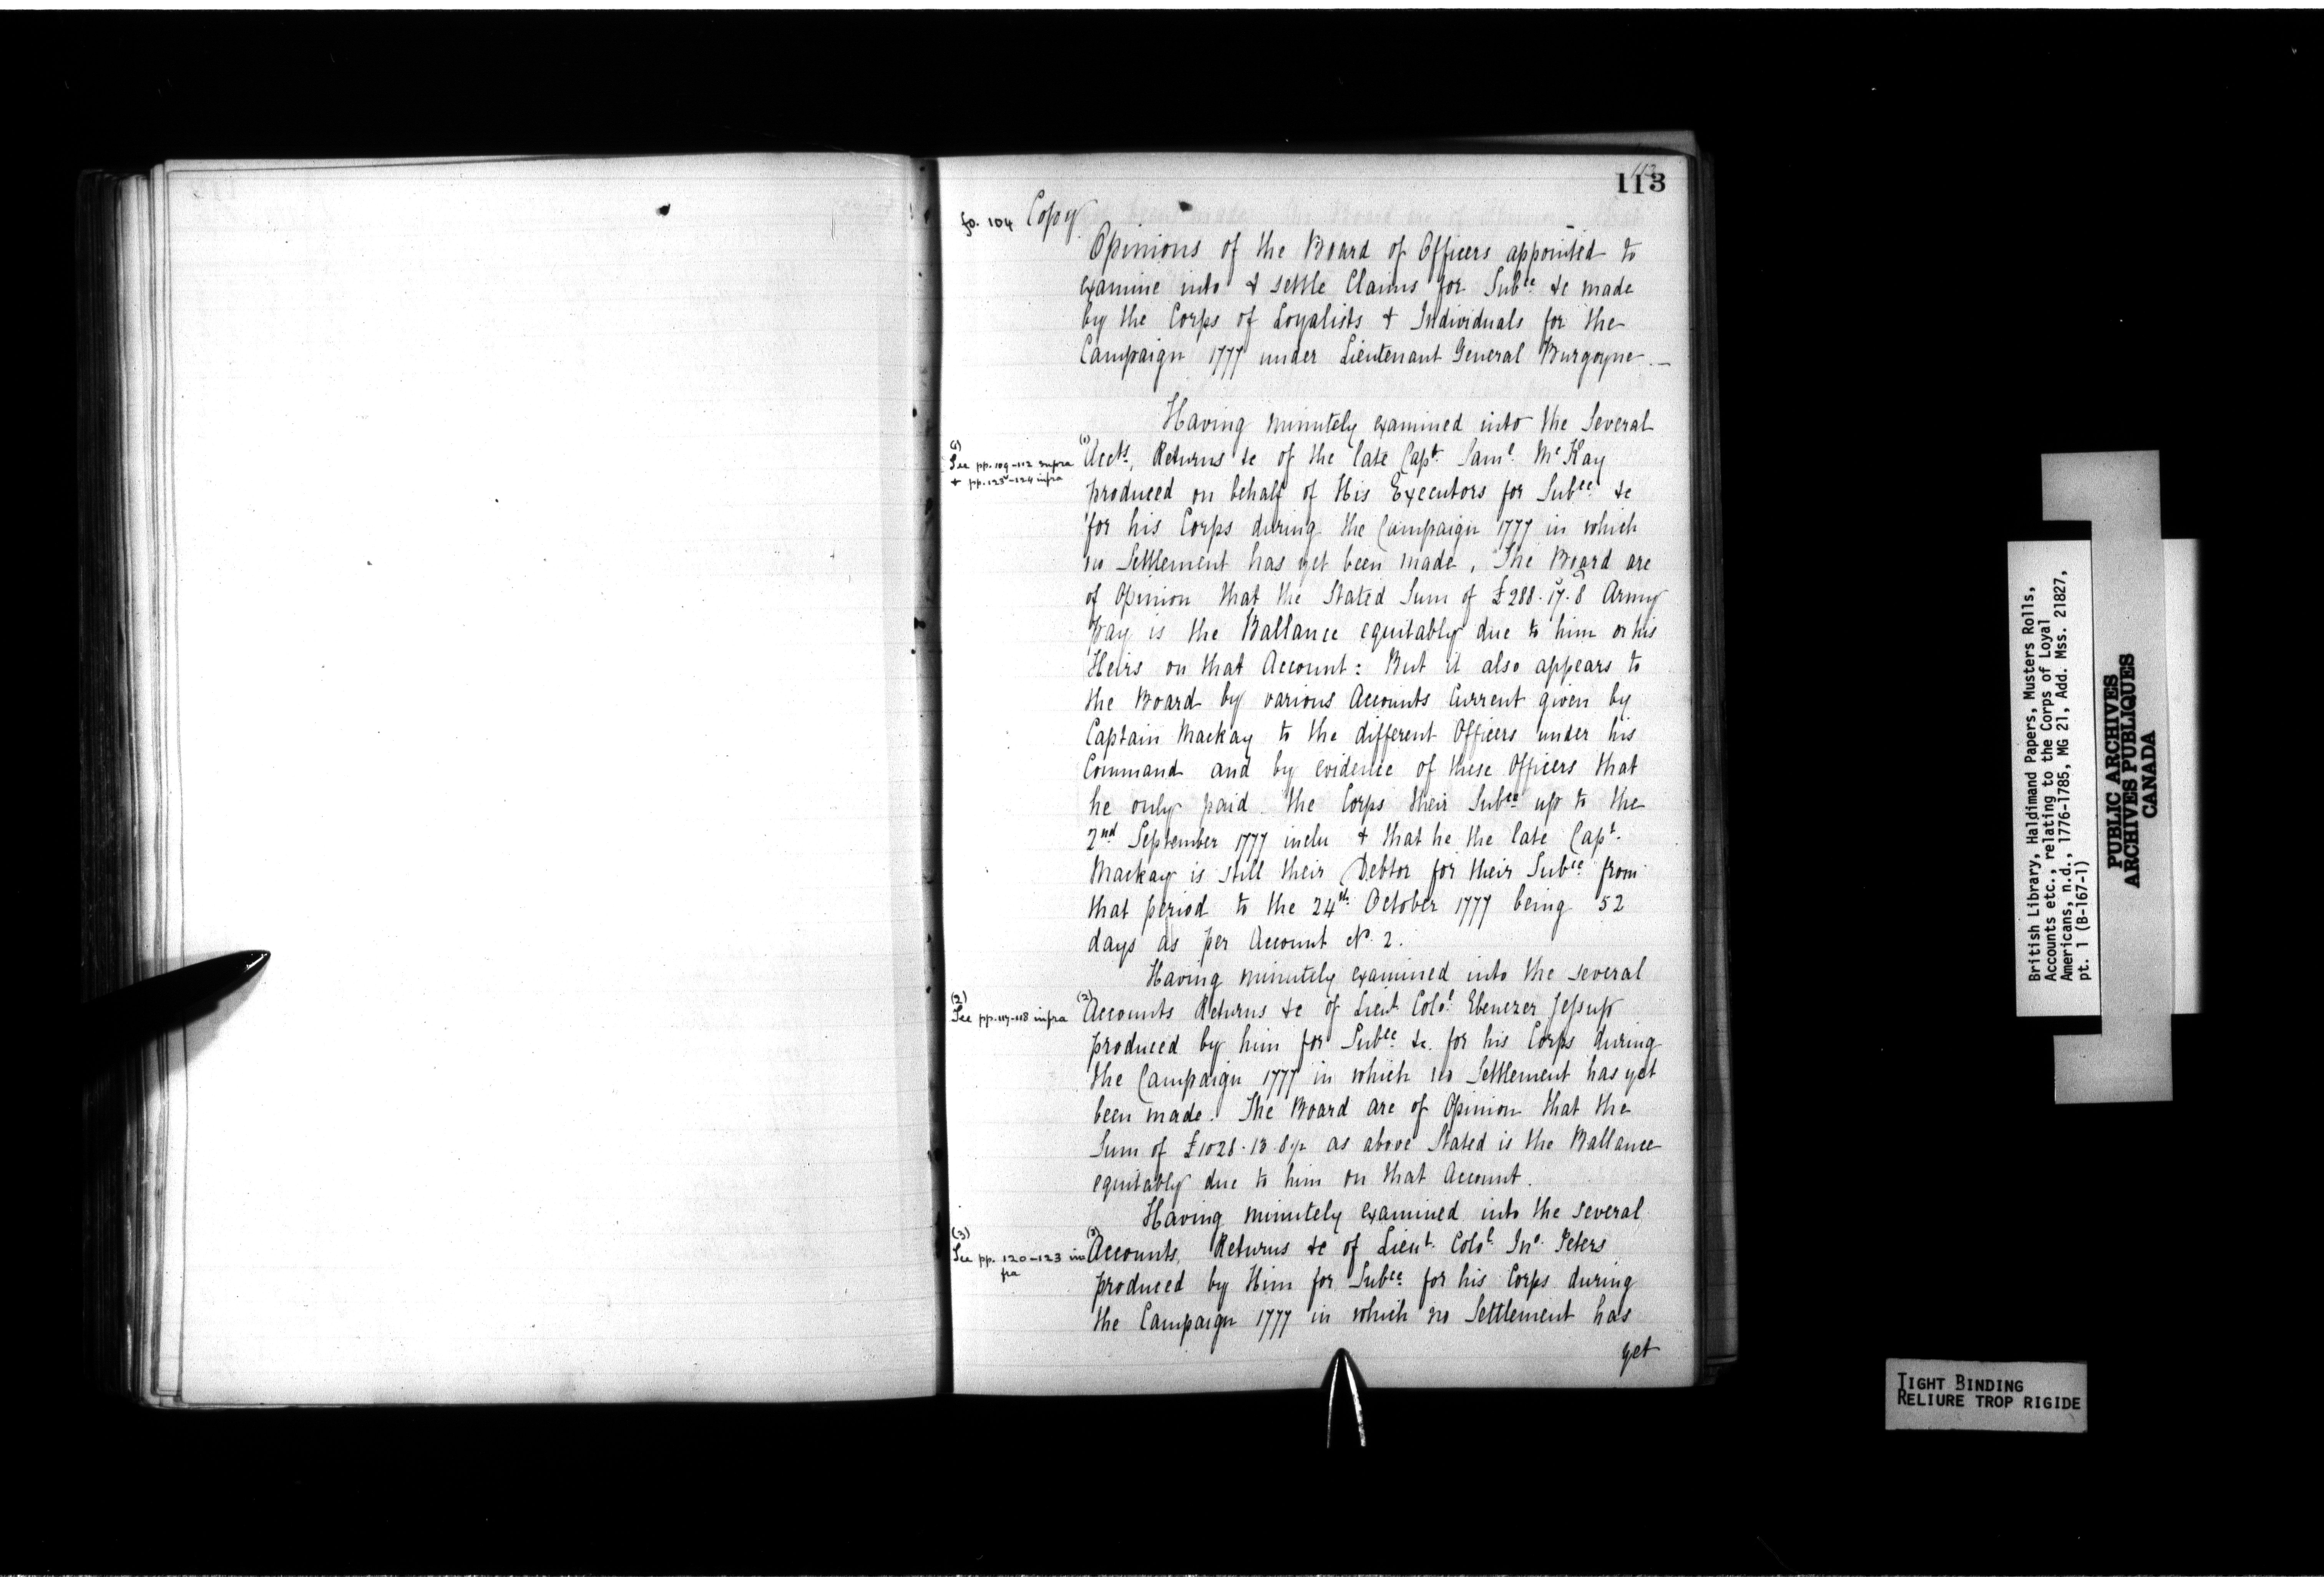 113
fo. 104 Copy
Opinions of the Board of Officers appointed to
examine into & settle Claims for Subce &c made
by the Corps of Loyalists & Individuals for the
Campaign 1777 under Lieutenant General Burgoyne —
Having minutely examined into the Several
(1)
See pp. 109-112 supra
& pp. 123-124 infra
(1) Accts, Returns &c of the late Capt. Saml. McKay
produced on behalf of His Executors for Subce &c
for his Corps during the Campaign 1777 in which
no Settlement has yet been made. The Board are
of Opinion that the Stated Sum of £288.17.8 Army
Pay is the Ballance equitably due to him or his
Heirs on that Account: But it also appears to
the Board by various Accounts Current given by
Captain Mackay to the different Officers under his
Command and by evidence of these Officers that
he only paid the Corps their Subce up to the
2nd September 1777 inclu & that he the late Capt.
Mackay is still their Debtor for their Subce from
that period to the 24th October 1777 being 52
days as per Account No. 2.
Having minutely examined into the several
(2)
See pp. 117-118 infra
(2) Accounts Returns &c of Lieut Colol. Ebenezer Jessup
produced by him for Subce &c. for his Corps during
the Campaign 1777 in which no Settlement has yet
been made. The Board are of Opinion that the
Sum of £1028.13.8½ as above Stated is the Ballance
equitably due to him on that Account.
Having minutely examined into the several
(3)
See pp. 120-123 in
fra
(3) Accounts, Returns &c of Lieut. Colol. Jno. Peters
produced by Him for Subce for his Corps during
the Campaign 1777 in which no Settlement has
yet
British Library, Haldimand Papers, Musters Rolls,
Accounts etc., relating to the Corps of Loyal
Americans, n.d., 1776-1785, MG 21, Add. Mss. 21827,
pt. 1 (B-167-1)
PUBLIC ARCHIVES
ARCHIVES PUBLIQUES
CANADA
TIGHT BINDING
RELIURE TROP RIGIDE